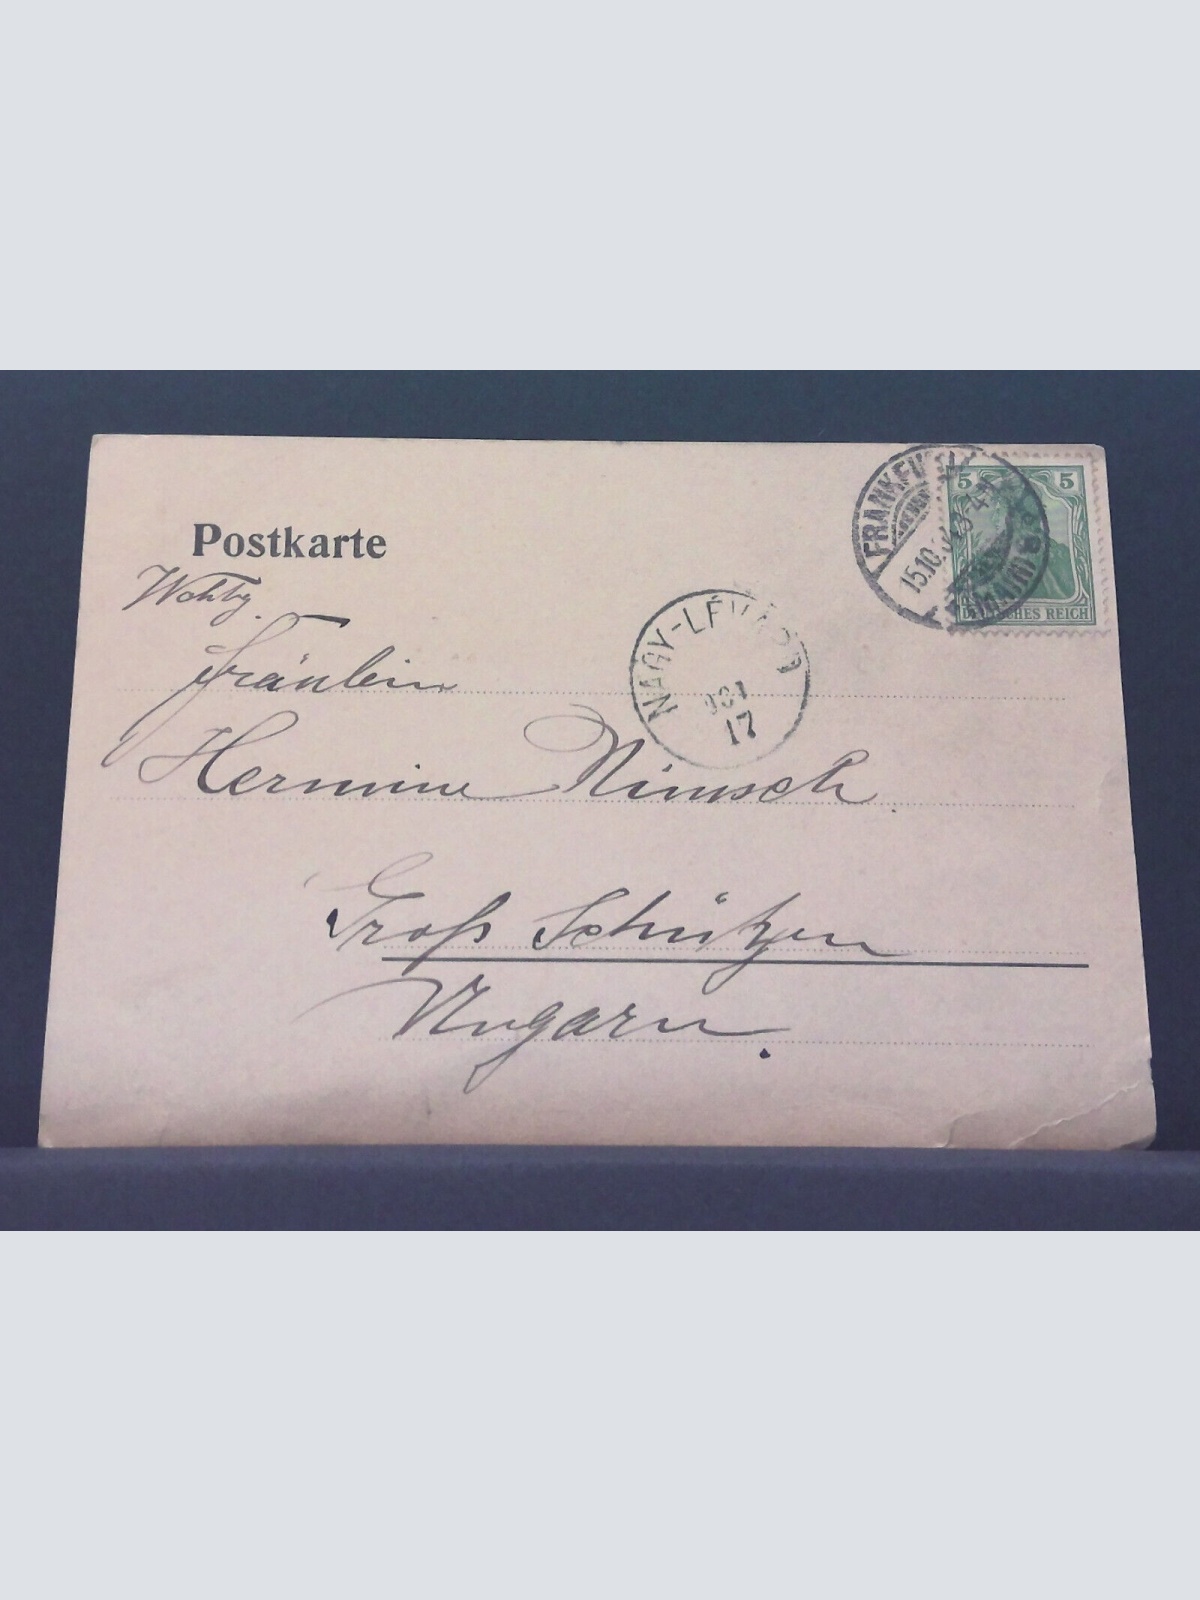 Postkarte
Wohlg.
Fräulein
Hermine Nimsch
Groß Schützen
Ungarn.
FRANKFURT
15.10.
(MAIN)
5 5
DEUTSCHES REICH
NAGY-LÉVÁRD
17